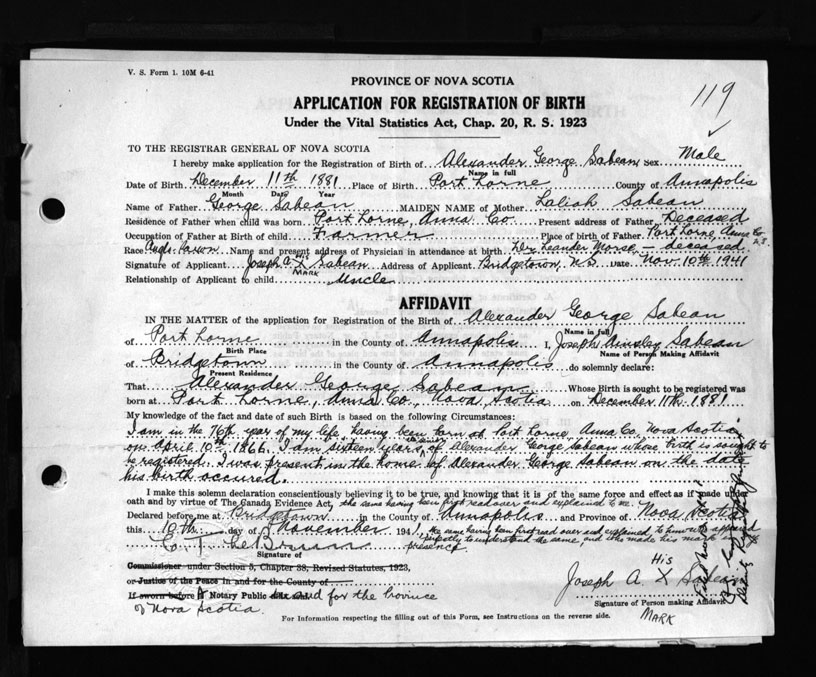 V. S. Form 1. 10M 6-41
119
PROVINCE OF NOVA SCOTIA
APPLICATION FOR REGISTRATION OF BIRTH
Under the Vital Statistics Act, Chap. 20, R. S. 1923
TO THE REGISTRAR GENERAL OF NOVA SCOTIA
I hereby make application for the Registration of Birth of Alexander George Sabean Sex Male
Name in full
Date of Birth December 11th 1881 Place of Birth Port Lorne County of Annapolis
Month Date Year
Name of Father George Sabean MAIDEN NAME of Mother Laliah Sabean
Residence of Father when child was born Port Lorne, Anna Co. Present address of Father Deceased
Occupation of Father at Birth of child Farmer Place of birth of Father Port Lorne, Anna Co N.S.
Race Anglo-Saxon Name and present address of Physician in attendance at birth Leander Morse, - deceased
Signature of Applicant Joseph A. His X Mark Sabean Address of Applicant Bridgetown, N.S. Date Nov. 10th 1941
Relationship of Applicant to child Uncle
AFFIDAVIT
IN THE MATTER of the application for Registration of the Birth of Alexander George Sabean
Name in full
of Port Lorne in the County of Annapolis I, Joseph Ainsley Sabean
Birth Place Name of Person Making Affidavit
of Bridgetown in the County of Annapolis do solemnly declare:
Present Residence
That Alexander George Sabean Whose Birth is sought to be registered was
born at Port Lorne, Anna Co., Nova Scotia on December 11th 1881
My knowledge of the fact and date of such Birth is based on the following Circumstances:
I am in the 76th year of my life, having been born at Port Lorne, Anna Co, Nova Scotia
on April 10th 1866. I am sixteen years senior of Alexander George Sabean whose birth is sought to
be registered. I was present in the home of Alexander George Sabean on the date
his birth occured.
I make this solemn declaration conscientiously believing it to be true, and knowing that it is of the same force and effect as if made under
oath and by virtue of The Canada Evidence Act, the same having been first read over and explained to me.
Declared before me at Bridgetown in the County of Annapolis and Province of Nova Scotia
this 10th day of November 1941, the same having been first read over and explained to him who appeared
perfectly to understand the same and who made his mark in my
presence
Signature of
Commissioner under Section 5, Chapter 38, Revised Statutes, 1923,
or Justice of the Peace in and for the County of
If sworn before A Notary Public in and for the Province
of Nova Scotia.
Joseph A. His X Mark Sabean
Signature of Person making Affidavit
For Information respecting the filling out of this Form, see Instructions on the reverse side.